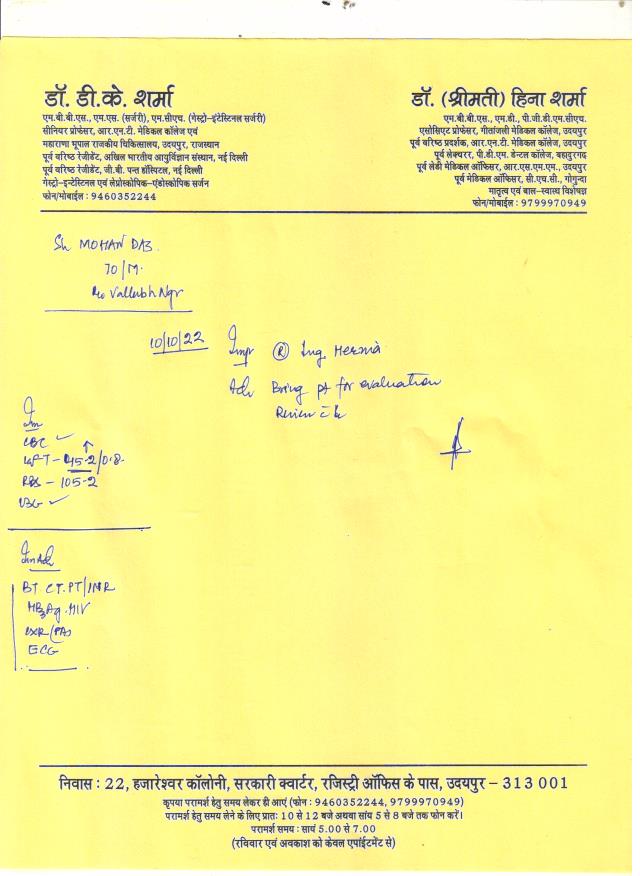 डॉ. डी.के. शर्मा
एम.बी.बी.एस., एम.एस. (सर्जरी), एम.सीएच. (गेस्ट्रो-इंटेस्टिनल सर्जरी)
सीनियर प्रोफेसर, आर.एन.टी. मेडिकल कॉलेज एवं
महाराणा भूपाल राजकीय चिकित्सालय, उदयपुर, राजस्थान
पूर्व वरिष्ठ रेजीडेंट, अखिल भारतीय आयुर्विज्ञान संस्थान, नई दिल्ली
पूर्व वरिष्ठ रेजीडेंट, जी.बी. पन्त हॉस्पिटल, नई दिल्ली
गेस्ट्रो-इन्टेस्टिनल एवं लेप्रोस्कोपिक-एंडोस्कोपिक सर्जन
फोन/मोबाईल : 9460352244
डॉ. (श्रीमती) हिना शर्मा
एम.बी.बी.एस., एम.डी., पी.जी.डी.एम.सीएच.
एसोसिएट प्रोफेसर, गीतांजली मेडिकल कॉलेज, उदयपुर
पूर्व वरिष्ठ प्रदर्शक, आर.एन.टी. मेडिकल कॉलेज, उदयपुर
पूर्व लेक्चरर, पी.डी.एम. डेन्टल कॉलेज, बहादुरगढ़
पूर्व लेडी मेडिकल ऑफिसर, आर.एस.एम.एम., उदयपुर
पूर्व मेडिकल ऑफिसर, सी.एच.सी., गोगुन्दा
मातृत्व एवं बाल-स्वास्थ्य विशेषज्ञ
फोन/मोबाईल : 9799970949
Sh MOHAN DAS
70/M.
R/o Vallabh Ngr
10/10/22 Imp (R) Ing Hernia
Adv Bring pt for evaluation
Review
CBC
RFT - 45.2/0.8
RBS - 105.2
Inv Adv
BT CT. PT/INR
HBsAg. HIV
CXR (PA)
ECG
निवास : 22, हजारेश्वर कॉलोनी, सरकारी क्वार्टर, रजिस्ट्री ऑफिस के पास, उदयपुर - 313 001
कृपया परामर्श हेतु समय लेकर ही आएं (फोन : 9460352244, 9799970949)
परामर्श हेतु समय लेने के लिए प्रातः 10 से 12 बजे अथवा सांय 5 से 8 बजे तक फोन करें।
परामर्श समय : सायं 5.00 से 7.00
(रविवार एवं अवकाश को केवल एपांईटमेंट से)